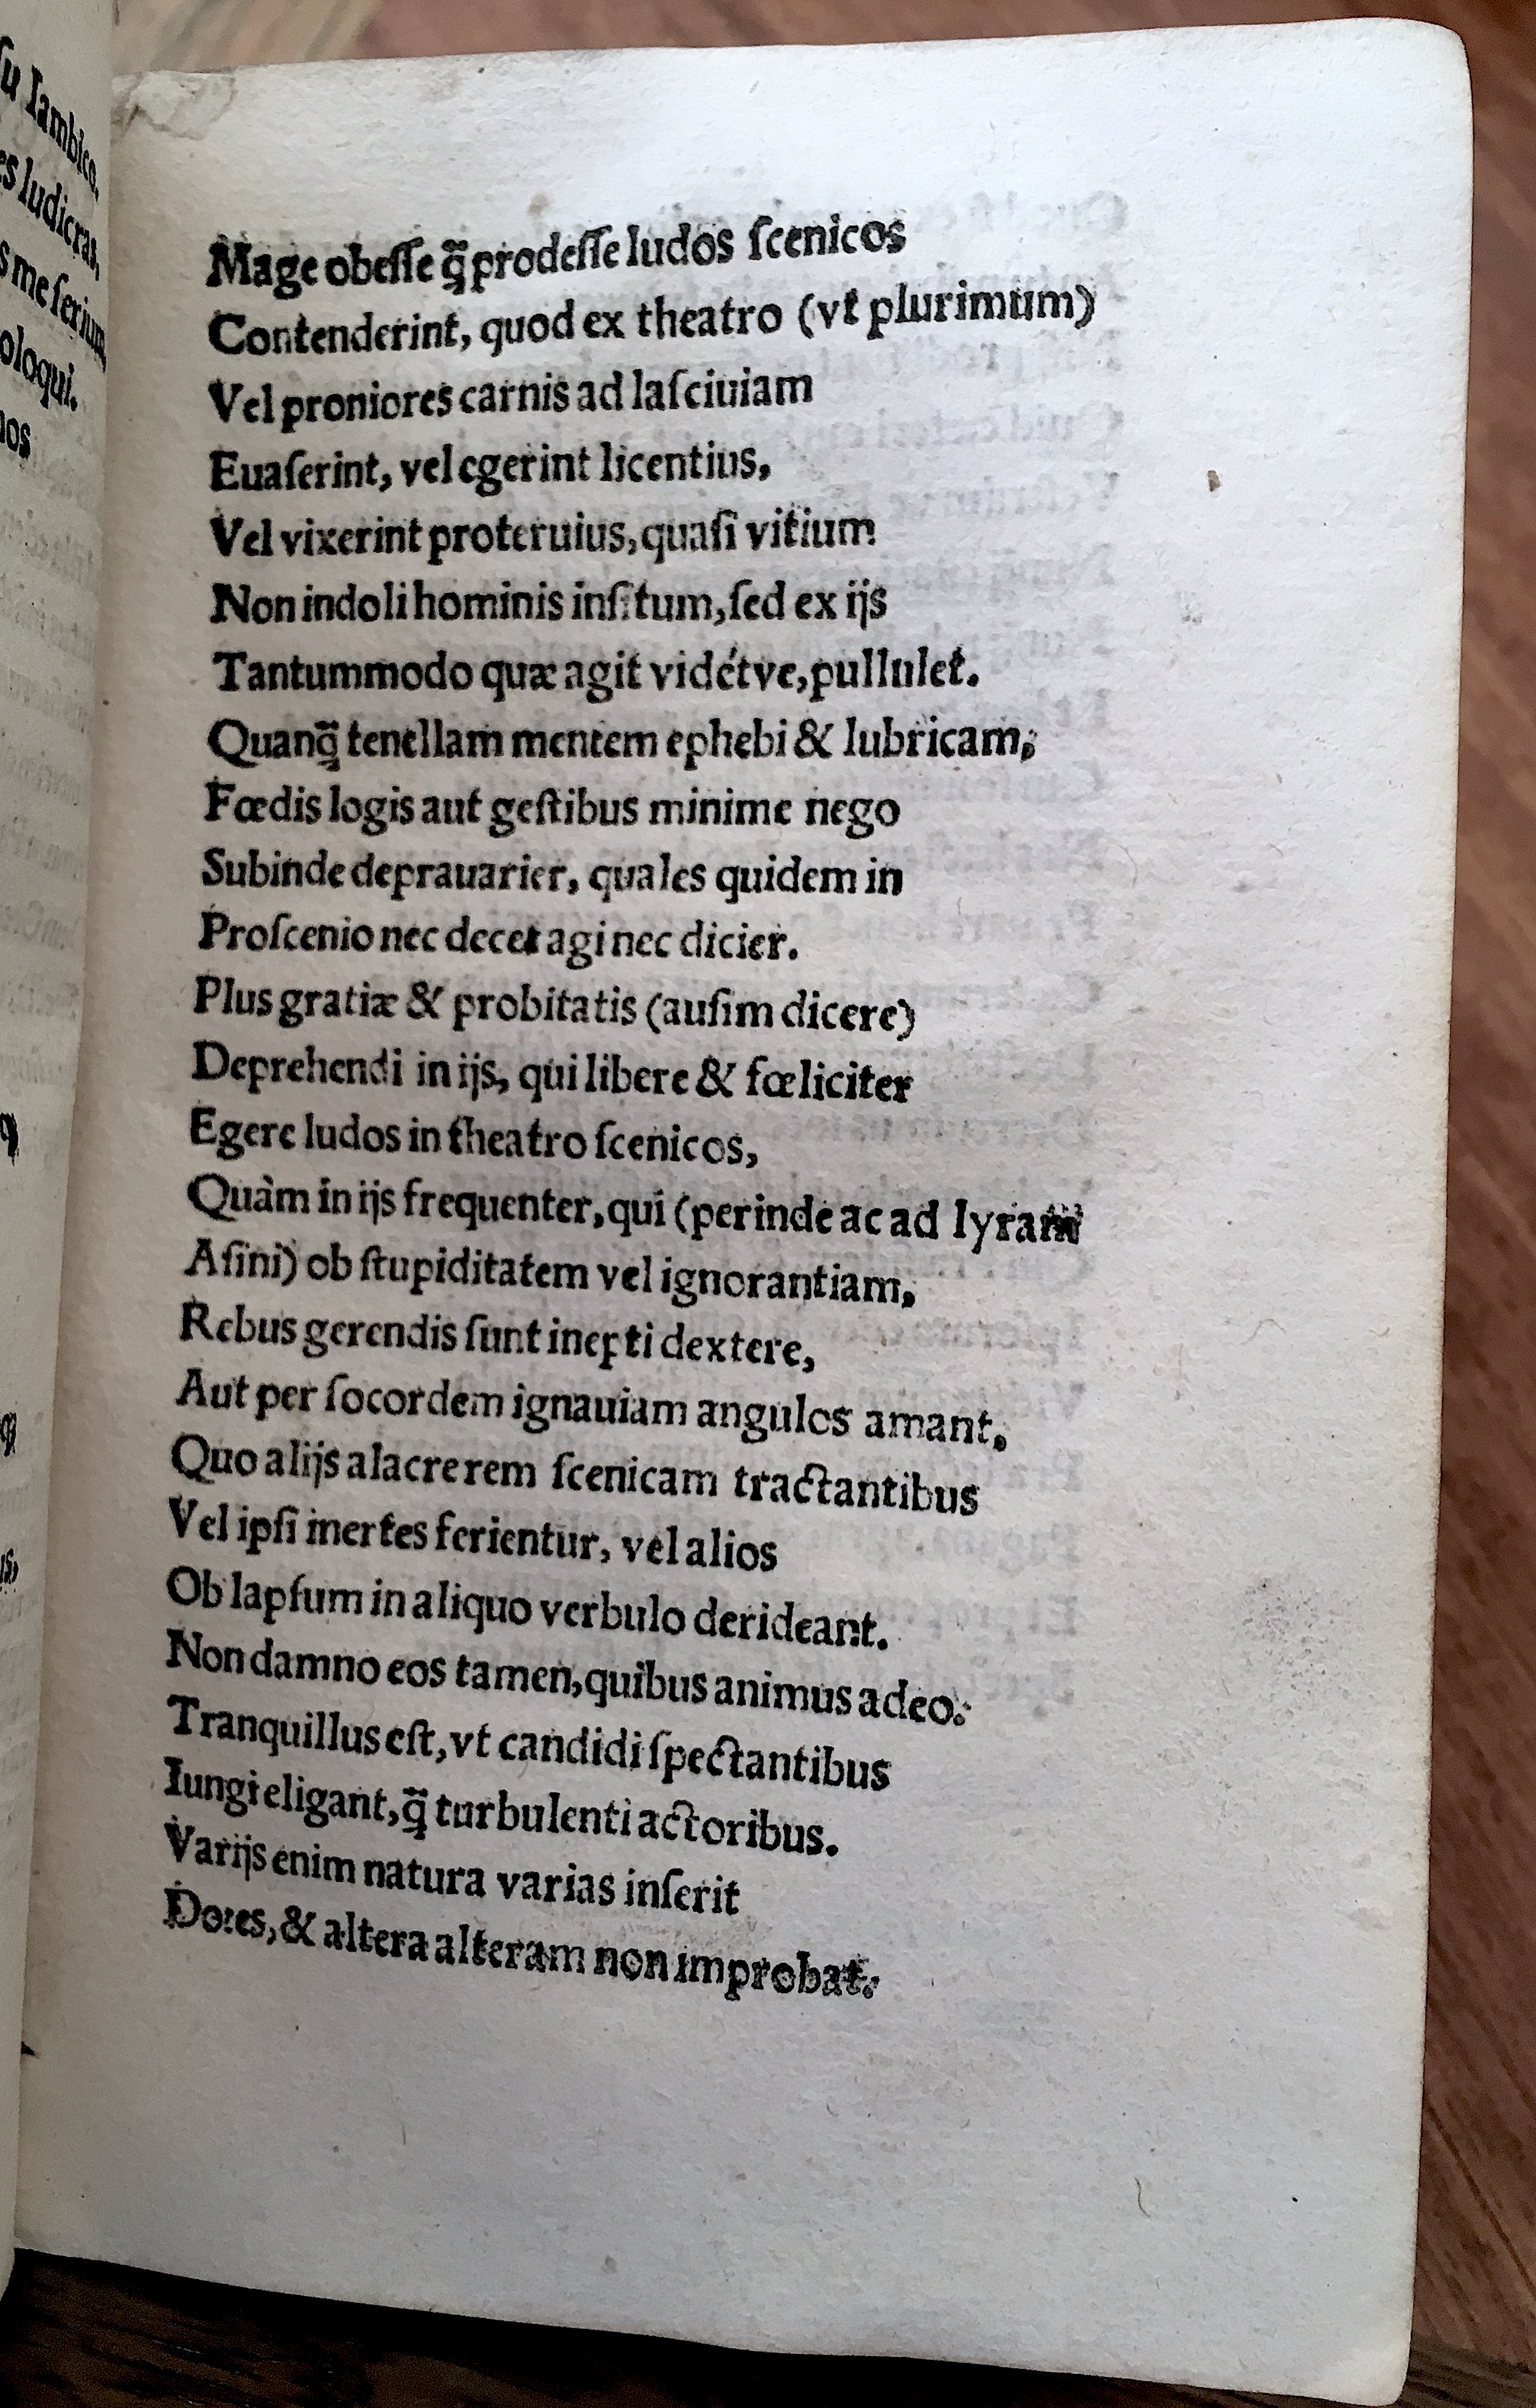 Mage obesse q̃ prodesse ludos scenicos
Contenderint, quod ex theatro (vt plurimum)
Vel proniores carnis ad lasciuiam
Euaserint, vel egerint licentius,
Vel vixerint proteruius, quasi vitium
Non indoli hominis insitum, sed ex ijs
Tantummodo quæ agit vidétve, pullulet.
Quanq̃ tenellam mentem ephebi & lubricam,
Fœdis logis aut gestibus minime nego
Subinde deprauarier, quales quidem in
Proscenio nec decet agi nec dicier.
Plus gratiæ & probitatis (ausim dicere)
Deprehendi in ijs, qui libere & fœliciter
Egere ludos in theatro scenicos,
Quàm in ijs frequenter, qui (perinde ac ad lyram
Asini) ob stupiditatem vel ignorantiam,
Rebus gerendis sunt inepti dextere,
Aut per socordem ignauiam angulos amant,
Quo alijs alacre rem scenicam tractantibus
Vel ipsi inertes ferientur, vel alios
Ob lapsum in aliquo verbulo derideant.
Non damno eos tamen, quibus animus adeo
Tranquillus est, vt candidi spectantibus
Iungi eligant, q̃ turbulenti actoribus.
Varijs enim natura varias inserit
Dotes, & altera alteram non improbat.